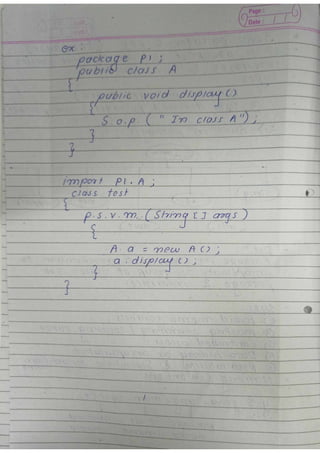 Page:
Date: / /
ex:
package P1;
public class A
{
public void display()
{
S.o.p ("In class A");
}
}
import P1.A;
class test
{
p.s.v.m. (String [] args)
{
A a = new A();
a.display();
}
}